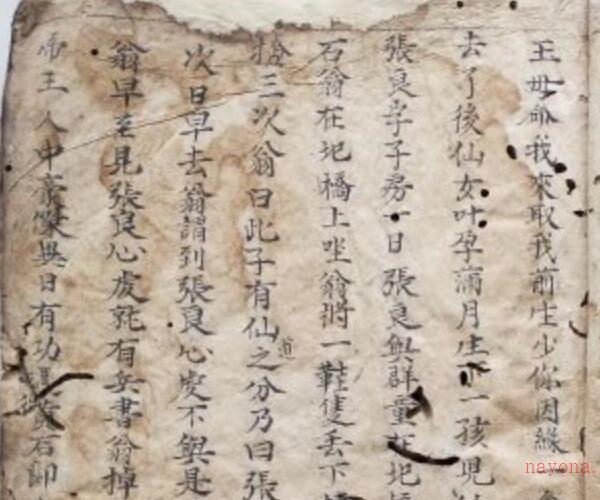 王母命我來取我前生少你因緣一
去了後仙女叶孕滿月生下一孩兒
張良字子房一日張良與群童在圯
石翁在圯橋上坐翁將一鞋隻丢下
拾三次翁曰此子有仙之道分乃曰張
次日早去翁謂到張良心䖍不與是
翁早至見張良心䖍就有兵書翁掉
帝王人中豪傑異日有功 黃石即
nayona.